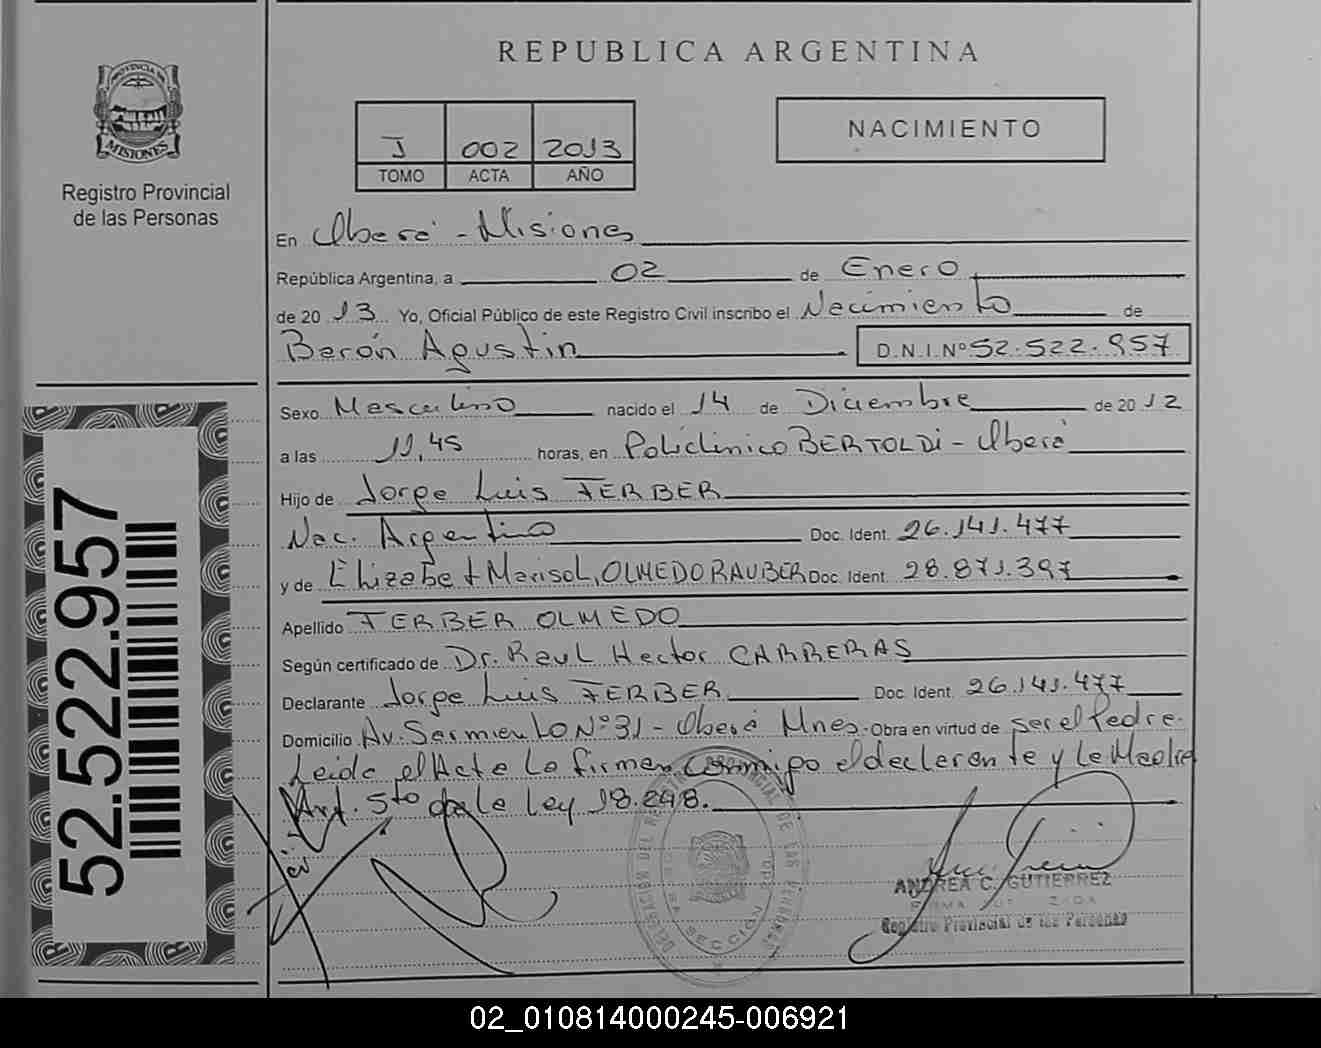 REPUBLICA ARGENTINA
PROVINCIA DE
MISIONES
Registro Provincial
de las Personas
J 002 2013
TOMO ACTA AÑO
NACIMIENTO
En Oberá - Misiones
República Argentina, a 02 de Enero
de 2013 Yo, Oficial Público de este Registro Civil inscribo el Nacimiento de
Barón Agustin D.N.I.Nº 52.522.957
Sexo Masculino nacido el 14 de Diciembre de 2012
a las 11,45 horas, en Policlinico BERTOLDI - Oberá
Hijo de Jorge Luis FERBER
Nac. Argentino Doc. Ident. 26.141.477
y de Elizabet Marisol, OLMEDO RAUBER Doc. Ident. 28.871.397
Apellido FERBER OLMEDO
Según certificado de Dr. Raul Hector CARRERAS
Declarante Jorge Luis FERBER Doc. Ident. 26.141.477
Domicilio Av. Sarmiento Nº 31 - Oberá Mnes. Obra en virtud de ser el Padre.
Leida el Acta La firman conmigo el declarante y La Madre
Art. 5to de la Ley 18.248.
ANDREA C. GUTIERREZ
Registro Provincial de las Personas
SECCION
52.522.957
02_010814000245-006921